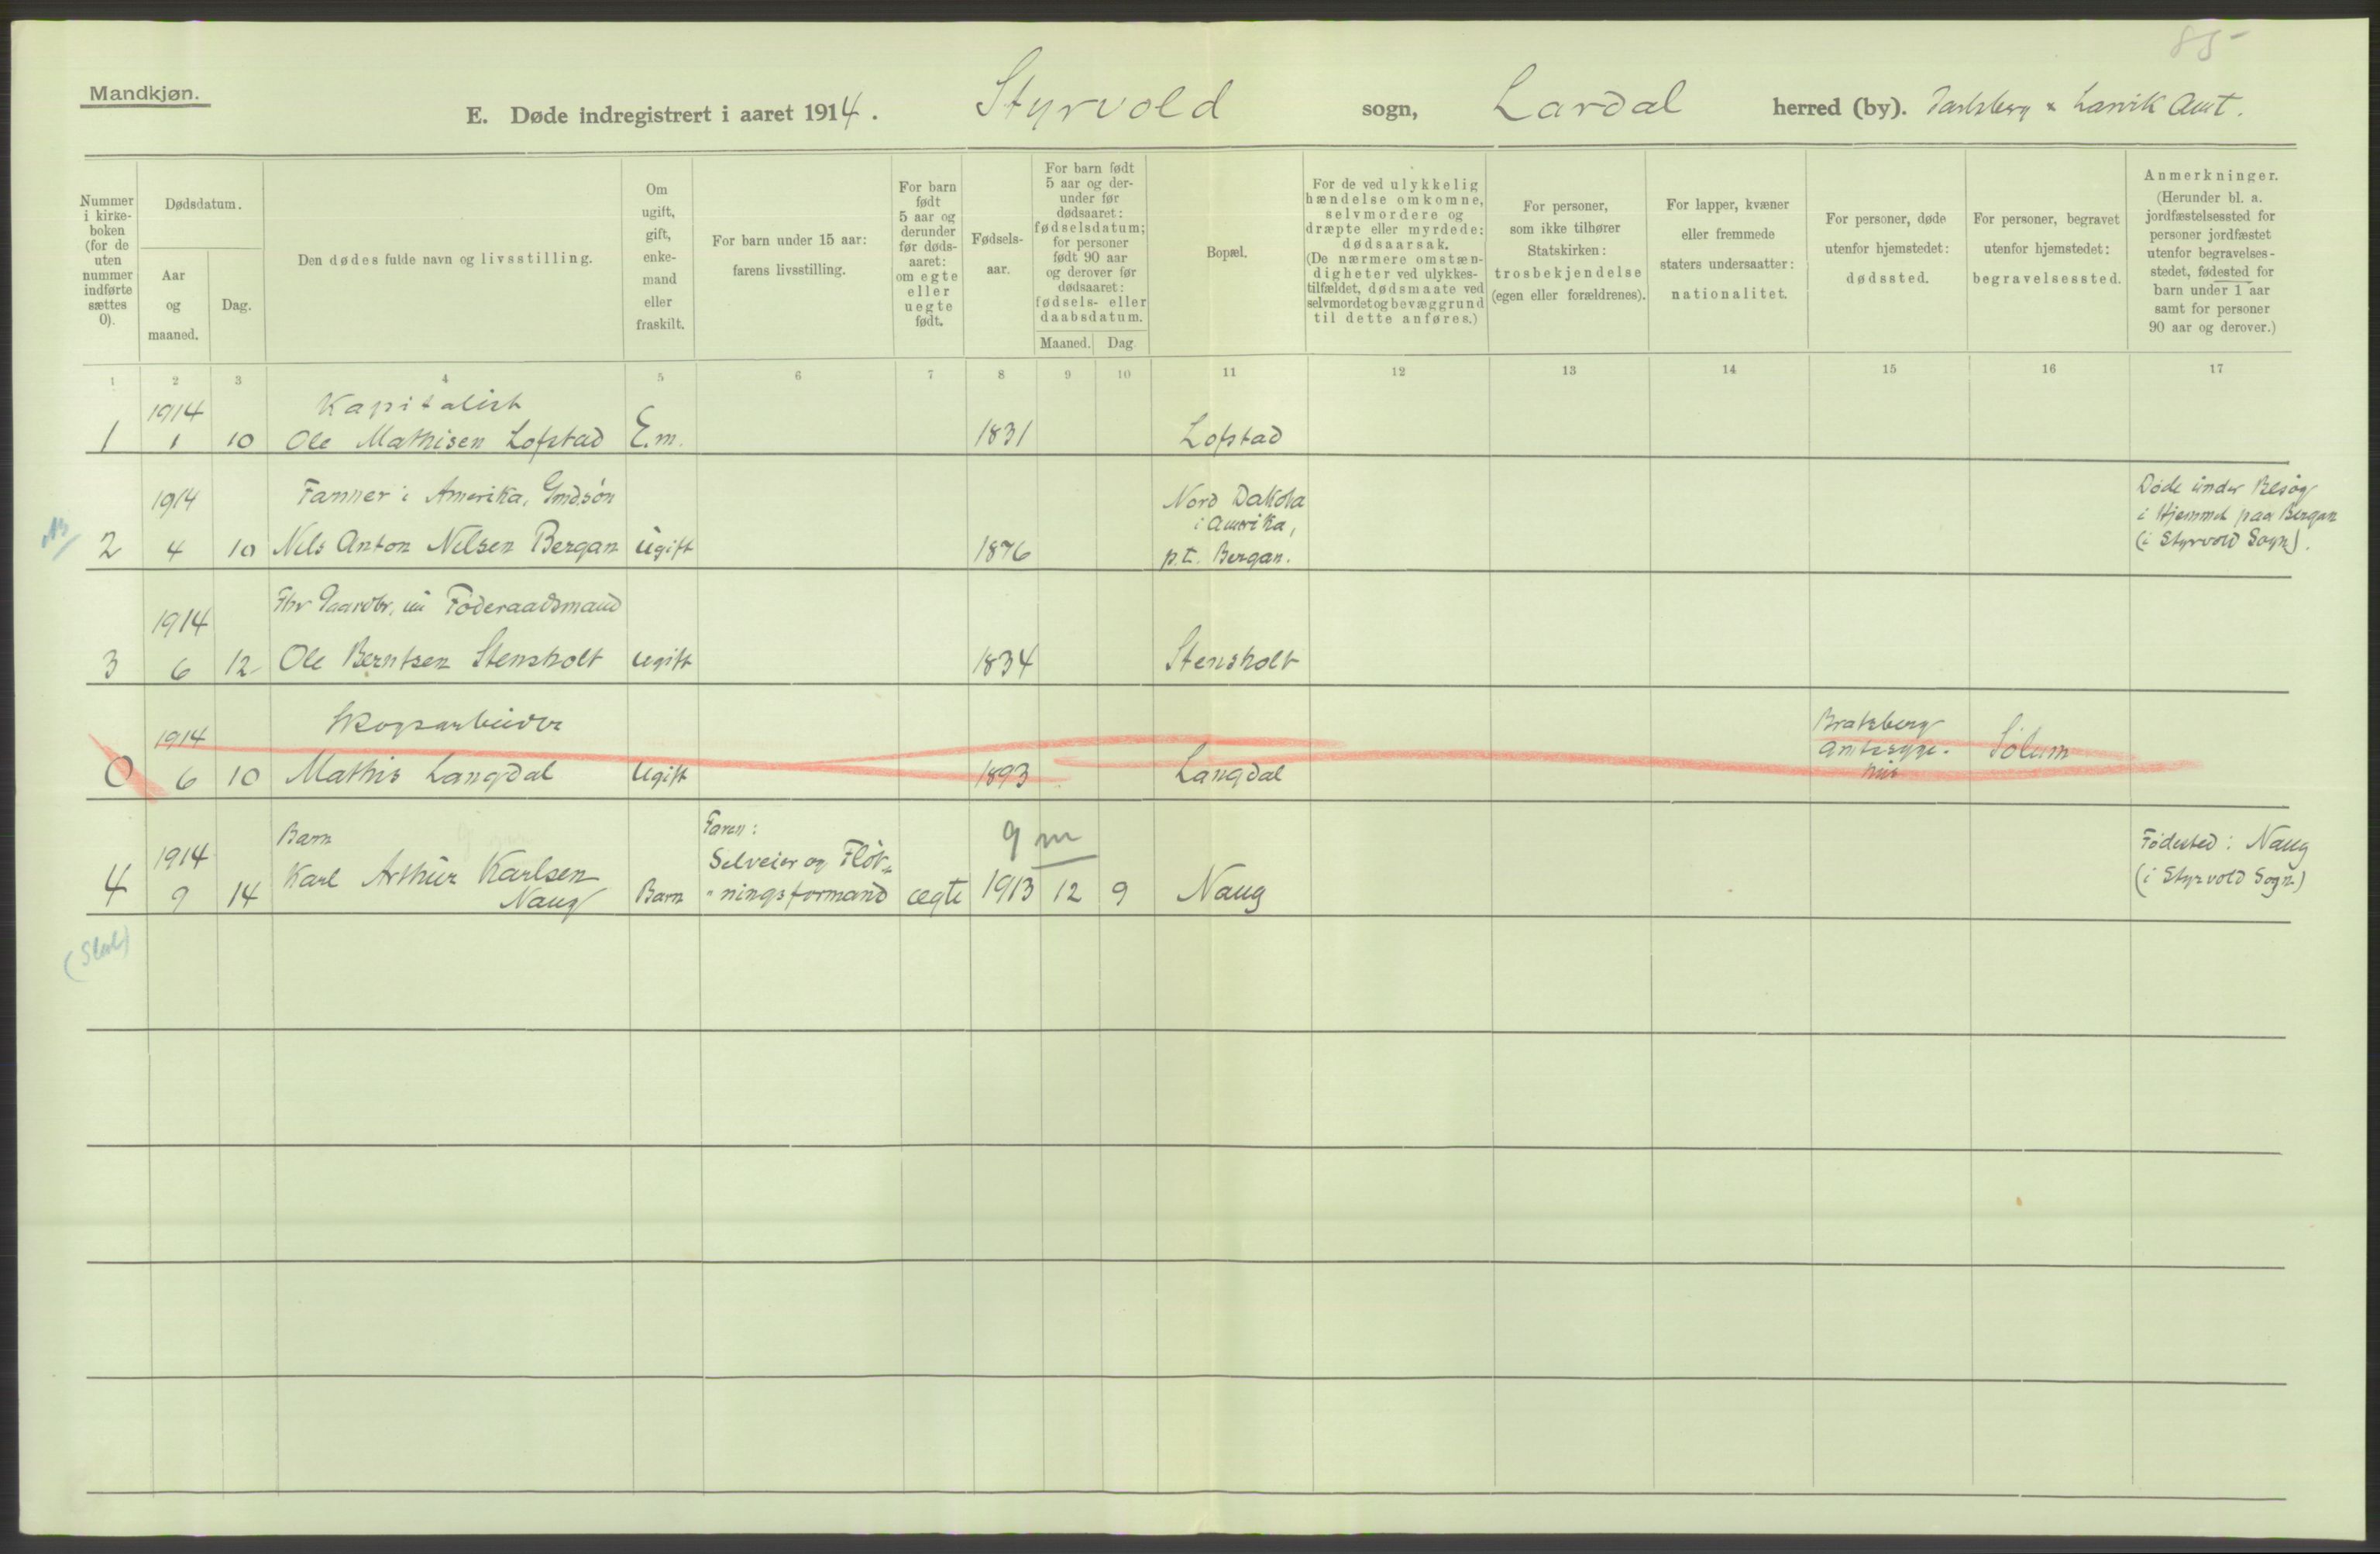 85
Mandkjøn.
E. Døde indregistrert i aaret 1914. Styrvold sogn, Lardal herred (by). Jarlsberg & Larvik Amt.
Nummer i kirke-boken (for de uten nummer indførte sættes 0).
Dødsdatum.
Aar og maaned.
Dag.
Den dødes fulde navn og livsstilling.
Om ugift, gift, enke-mand eller fraskilt.
For barn under 15 aar: farens livsstilling.
For barn født 5 aar og derunder før døds-aaret: om egte eller uegte født.
Fødsels-aar.
For barn født 5 aar og der-under før dødsaaret: fødselsdatum; for personer født 90 aar og derover før dødsaaret: fødsels- eller daabsdatum.
Maaned. Dag
Bopæl.
For de ved ulykkelig hændelse omkomne, selvmordere og dræpte eller myrdede: dødsaarsak. (De nærmere omstæn-digheter ved ulykkes-tilfældet, dødsmaate ved selvmordet og bevæggrund til dette anføres.)
For personer, som ikke tilhører Statskirken: trosbekjendelse (egen eller forældrenes).
For lapper, kvæner eller fremmede staters undersaatter: nationalitet.
For personer, døde utenfor hjemstedet: dødssted.
For personer, begravet utenfor hjemstedet: begravelsessted.
Anmerkninger. (Herunder bl. a. jordfæstelsessted for personer jordfæstet utenfor begravelses-stedet, fødested for barn under 1 aar samt for personer 90 aar og derover.)
1 2 3 4 5 6 7 8 9 10 11 12 13 14 15 16 17
1914 Kapitalist
1 1 10 Ole Mathisen Lofstad E.m. 1831 Lofstad
1914 Farmer i Amerika, Grdsøn Nord Dakota
i Amerika,
2 4 10 Nils Anton Nilsen Bergan Ugift 1876 p.t. Bergan.
Døde under Besøg
i Hjemmet paa Bergan
(i Styrvold Sogn).
1914 Fhv Gaardbr. nu Føderaadsmand
3 6 12 Ole Berntsen Stensholt Ugift 1834 Stensholt
1914 Skogsarbeider
0 6 10 Mathis Langdal Ugift 1893 Langdal
Bratsberg
Amtssyge-
hus
Solum
1914 Barn
4 9 14 Karl Arthur Karlsen
Naug Barn
Faren:
Selveier og Fløt-
ningsformand ægte
9 m
1913 12 9 Naug
Fødested: Naug
(i Styrvold Sogn)